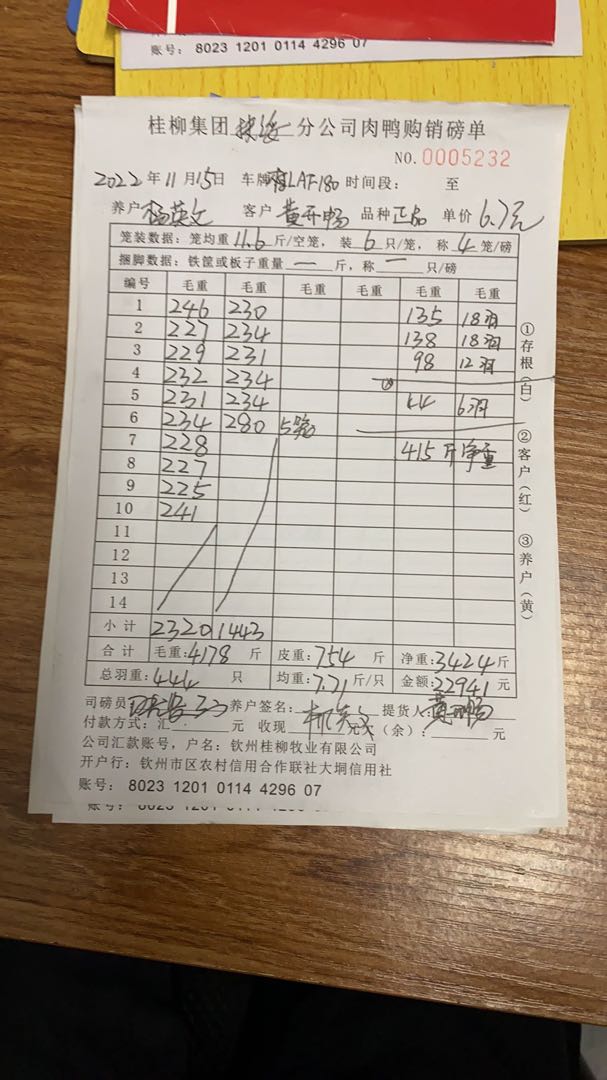 账号: 8023 1201 0114 4296 07
桂柳集团 分公司肉鸭购销磅单
NO.0005232
2022年11月15日 车牌 LAF180 时间段: 至
养户 杨英文 客户 黄开畅 品种 正品 单价 6.7元
笼装数据: 笼均重 11.6 斤/空笼, 装 6 只/笼, 称 4 笼/磅
捆脚数据: 铁筐或板子重量 一 斤, 称 一 只/磅
编号 毛重 毛重 毛重 毛重 毛重 毛重
1 246 230 135 18羽
2 227 234 138 18羽
3 229 231 98 12羽
4 232 234
5 231 234 44 6羽
6 234 280 5笼
7 228 415斤净重
8 227
9 225
10 241
11
12
13
14
小计 2320 1443
合计 毛重: 4178 斤 皮重: 754 斤 净重: 3424 斤
总羽重: 444 只 均重: 7.71 斤/只 金额: 22941 元
司磅员 养户签名: 提货人: 黄开畅
付款方式: 汇 元 收现 元欠(余): 元
公司汇款账号, 户名: 钦州桂柳牧业有限公司
开户行: 钦州市区农村信用合作联社大垌信用社
账号: 8023 1201 0114 4296 07
①存根(白) ②客户(红) ③养户(黄)